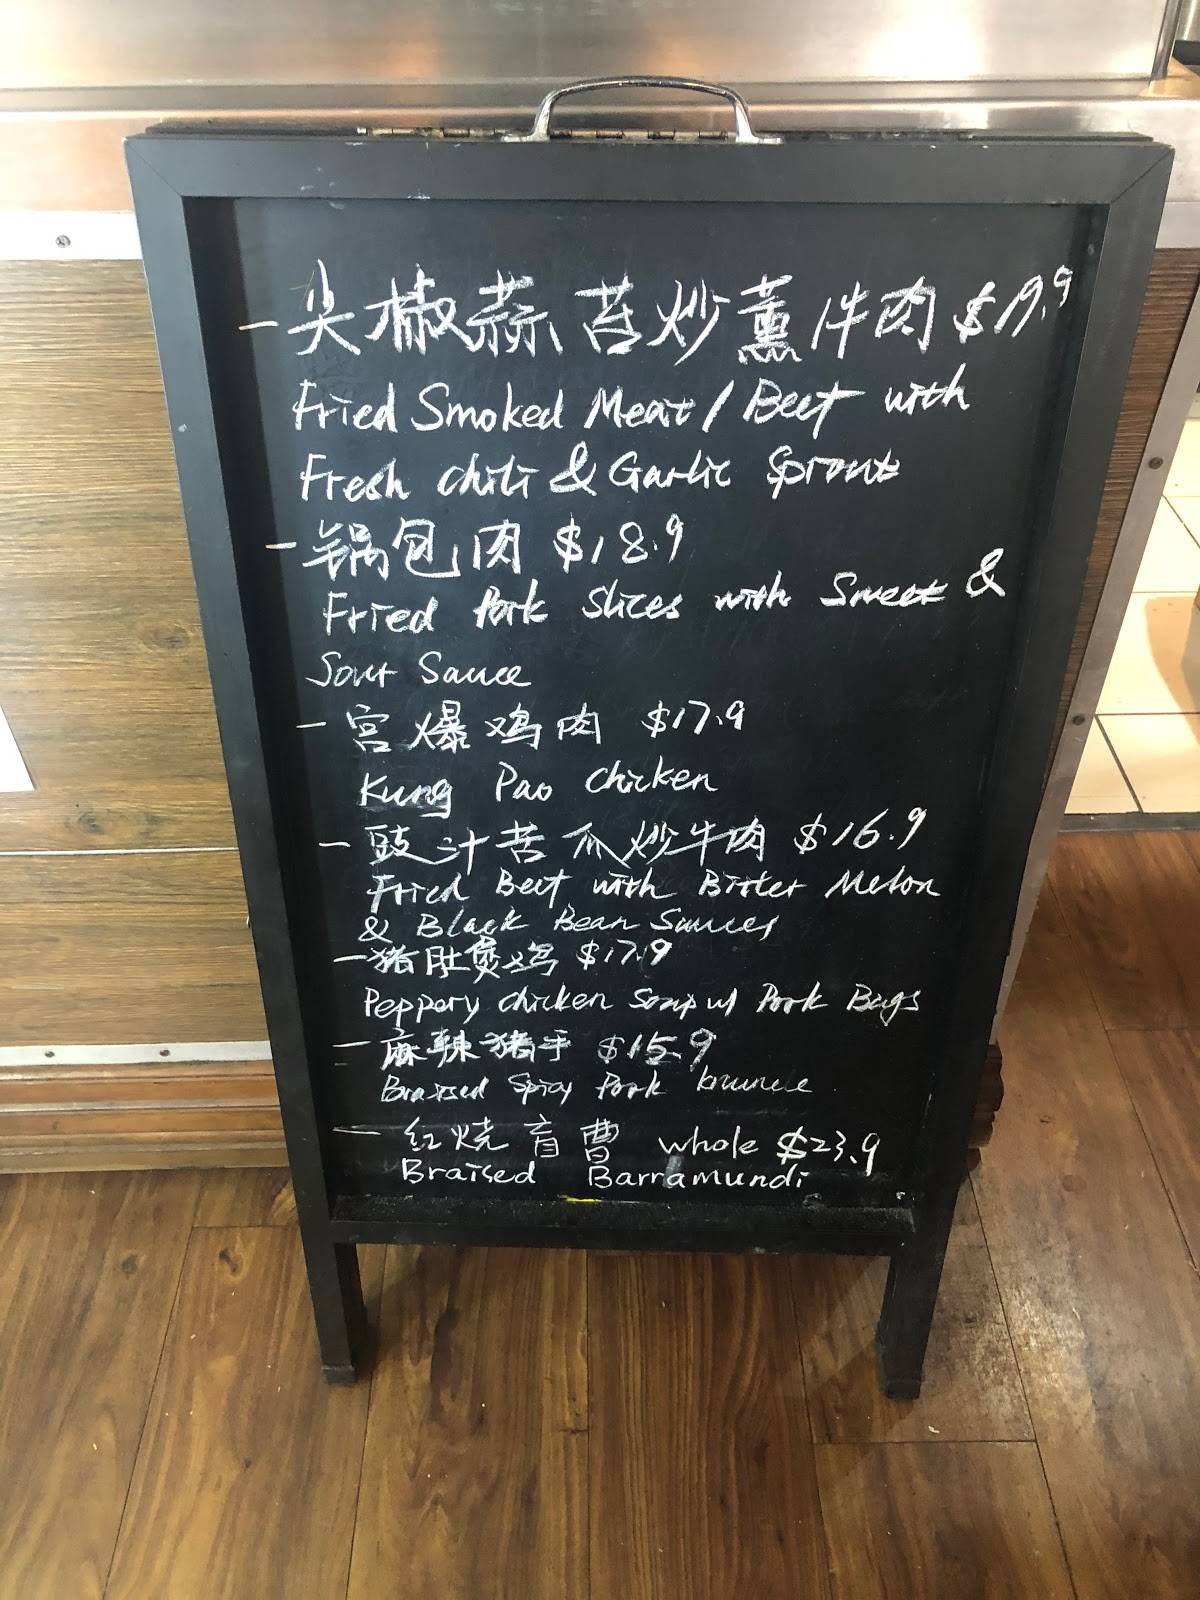 一尖椒蒜苔炒薰牛肉 $19.9
Fried Smoked Meat / Beef with
Fresh chili & Garlic Sprouts
一锅包肉 $18.9
Fried Pork Slices with Sweet &
Sour Sauce
一宫爆鸡肉 $17.9
Kung Pao chicken
一豉汁苦瓜炒牛肉 $16.9
Fried Beef with Bitter Melon
& Black Bean Sauces
一猪肚煲鸡 $17.9
Peppery chicken Soup w/ Pork Bags
一麻辣猪手 $15.9
Braised Spicy Pork knuncle
一红烧盲曹 whole $23.9
Braised Barramundi